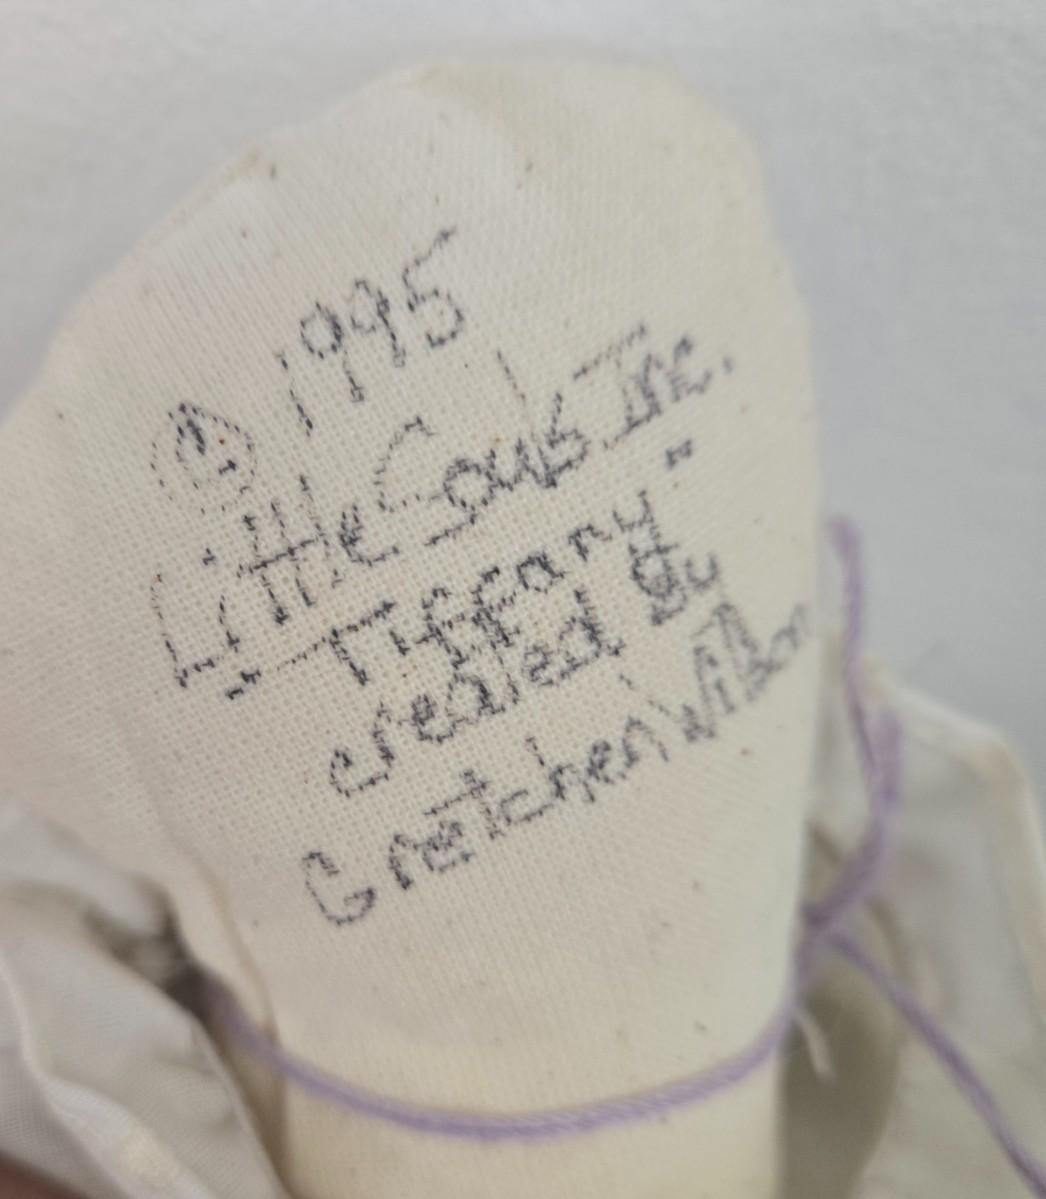 © 1995
Little Souls Inc.
"Tiffany"
created by
Gretchen Wilson